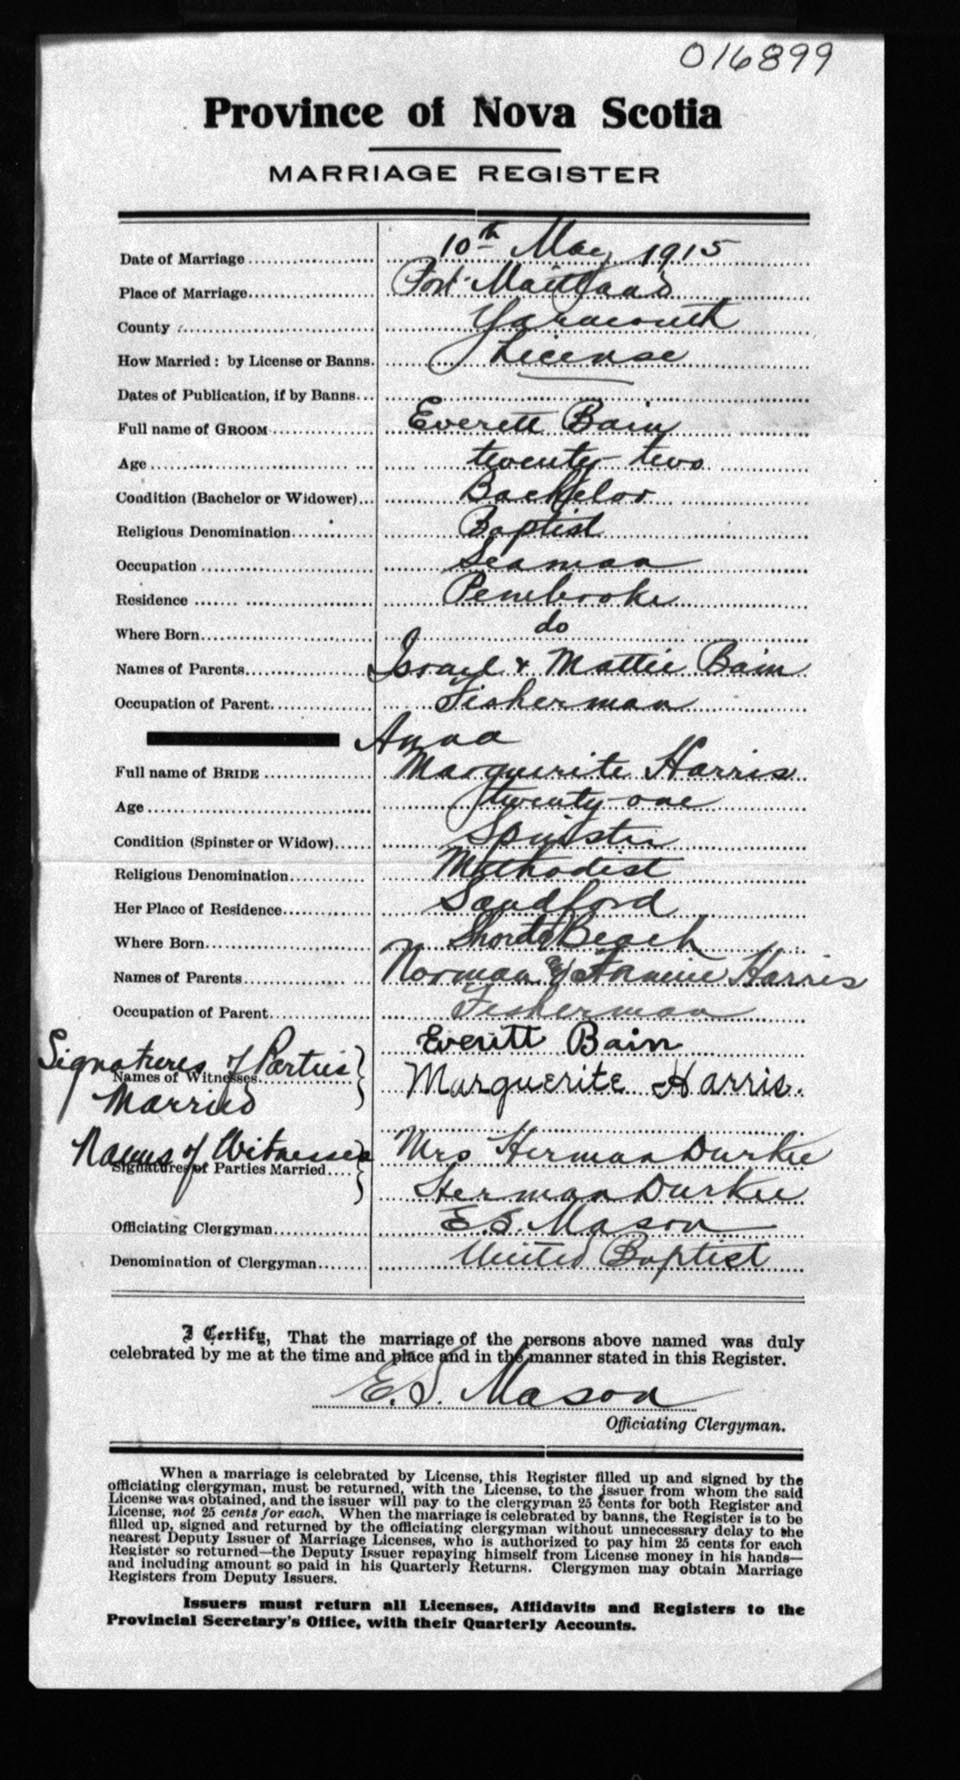 016899
Province of Nova Scotia
MARRIAGE REGISTER
Date of Marriage 10th May 1915
Place of Marriage Port Maitland
County Yarmouth
How Married: by License or Banns. License
Dates of Publication, if by Banns
Full name of GROOM Everett Bain
Age twenty-two
Condition (Bachelor or Widower) Bachelor
Religious Denomination Baptist
Occupation Seaman
Residence Pembrooke
Where Born do
Names of Parents Israel & Mattie Bain
Occupation of Parent Fisherman
Anna
Full name of BRIDE Marguerite Harris
Age twenty-one
Condition (Spinster or Widow) Spinster
Religious Denomination Methodist
Her Place of Residence Sandford
Where Born Beach
Names of Parents Norman & Fannie Harris
Occupation of Parent Fisherman
Everett Bain
Signatures of Parties
Names of Witnesses Marguerite Harris.
Married
Names of Witnesses Mrs Herman Durkee
Signatures of Parties Married
Herman Durkee
Officiating Clergyman E. S. Mason
Denomination of Clergyman United Baptist
I Certify, That the marriage of the persons above named was duly
celebrated by me at the time and place and in the manner stated in this Register.
E. S. Mason
Officiating Clergyman.
When a marriage is celebrated by License, this Register filled up and signed by the
officiating clergyman, must be returned, with the License, to the issuer from whom the said
License was obtained, and the issuer will pay to the clergyman 25 cents for both Register and
License, not 25 cents for each. When the marriage is celebrated by banns, the Register is to be
filled up, signed and returned by the officiating clergyman without unnecessary delay to the
nearest Deputy Issuer of Marriage Licenses, who is authorized to pay him 25 cents for each
Register so returned—the Deputy Issuer repaying himself from License money in his hands—
and including amount so paid in his Quarterly Returns. Clergymen may obtain Marriage
Registers from Deputy Issuers.
Issuers must return all Licenses, Affidavits and Registers to the
Provincial Secretary's Office, with their Quarterly Accounts.